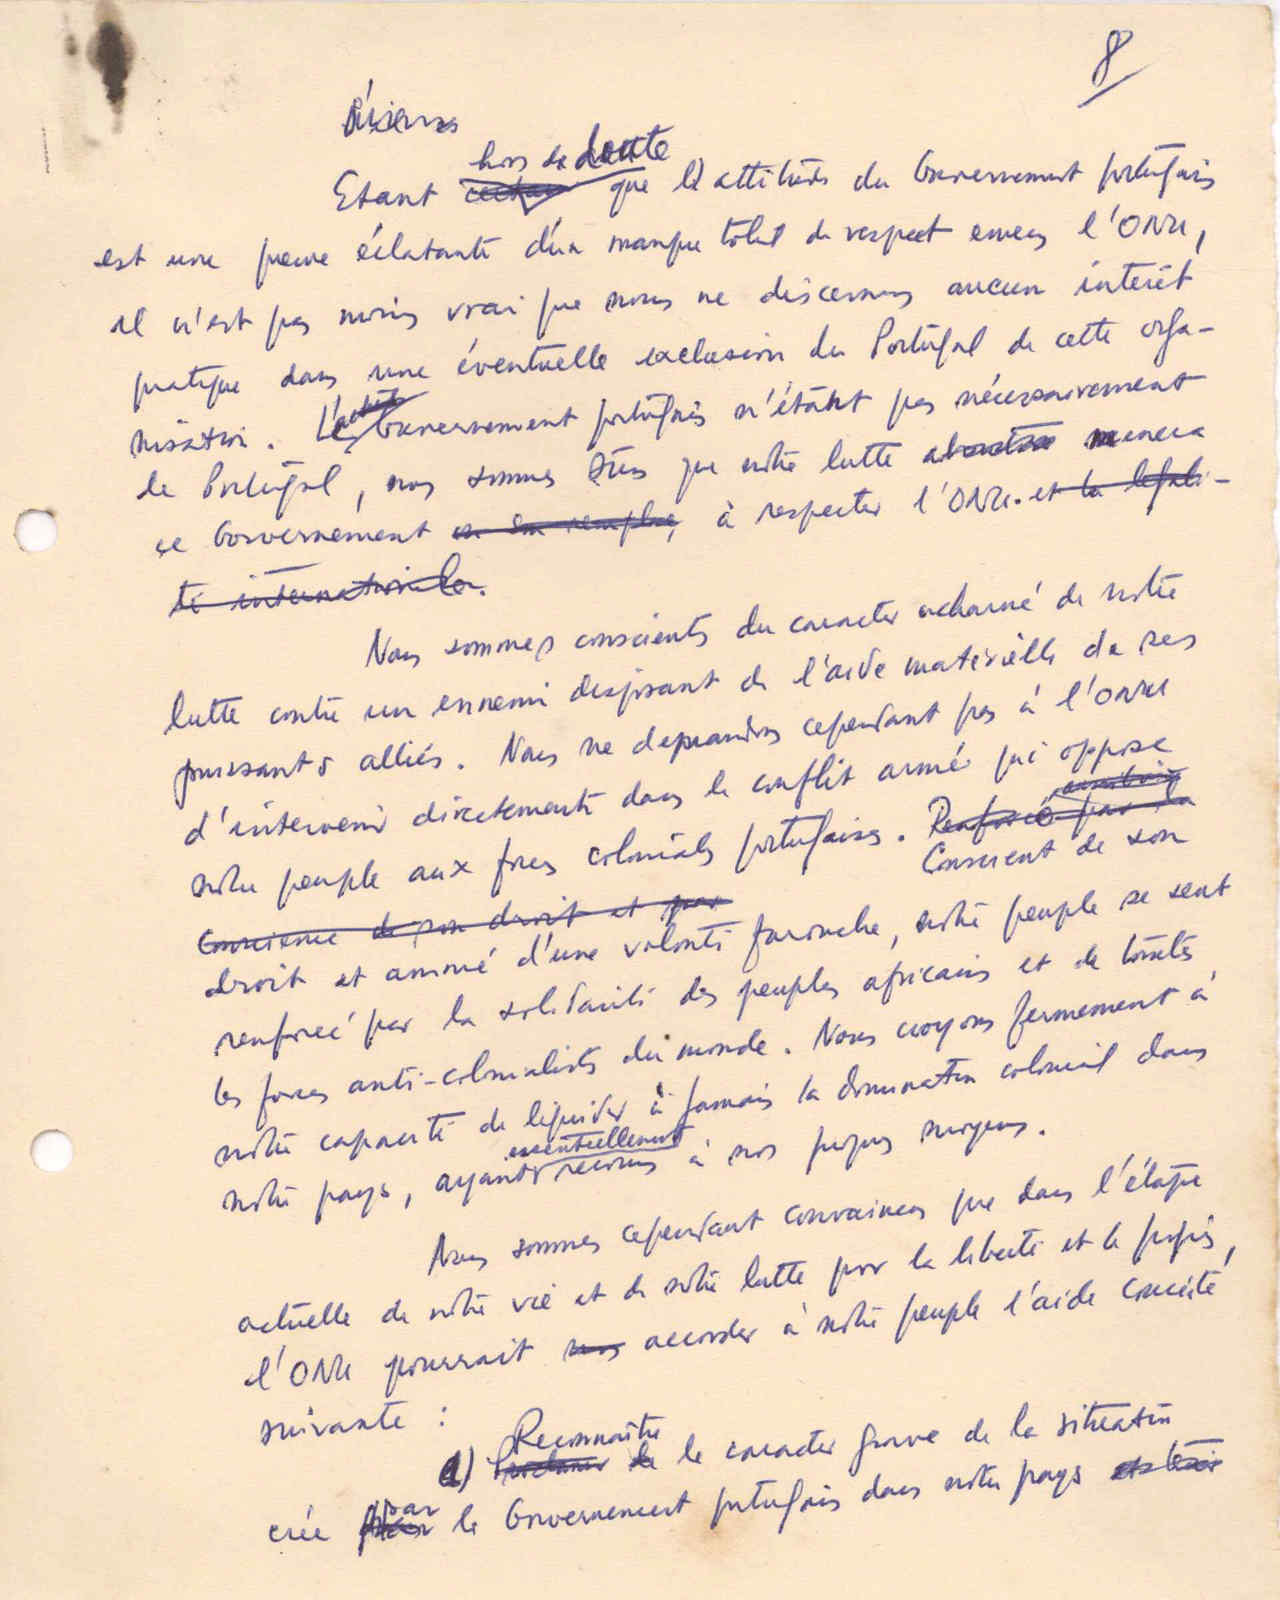 8
hors de doute
Etant que l'attitude du Gouvernement portugais
est une preuve éclatante d'un manque total de respect envers l'ONU,
il n'est pas moins vrai que nous ne discernons aucun intérêt
pratique dans une éventuelle exclusion du Portugal de cette orga-
nisation. Le Gouvernement portugais n'étant pas nécessairement
le Portugal, nous sommes sûrs que notre lutte menera
ce Gouvernement ou son remplac, à respecter l'ONU. et la légali-
té internationale.
Nous sommes conscients du caracter acharné de notre
lutte contre un ennemi disposant de l'aide matérielle de ses
puissants alliés. Nous ne demandons cependant pas à l'ONU
d'intervenir directement dans le conflit armé qui oppose
notre peuple aux forces coloniales portugaises. Renforcé par la
Conscient de son
conscience de son droit et par
droit et animé d'une volonté farouche, notre peuple se sent
renforcé par la solidarité des peuples africains et de toutes
les forces anti-colonialistes du monde. Nous croyons fermement à
notre capacité de liquider à jamais la domination colonial dans
essentiellement
notre pays, ayant recours à nos propres moyens.
Nous sommes cependant convaincus que dans l'étape
actuelle de notre vie et de notre lutte pour la liberté et le progrès,
l'ONU pourrait nous accorder à notre peuple l'aide concrète
suivante :
Reconnaître
a) le caracter grave de la situation
par
crée le Gouvernement portugais dans notre pays